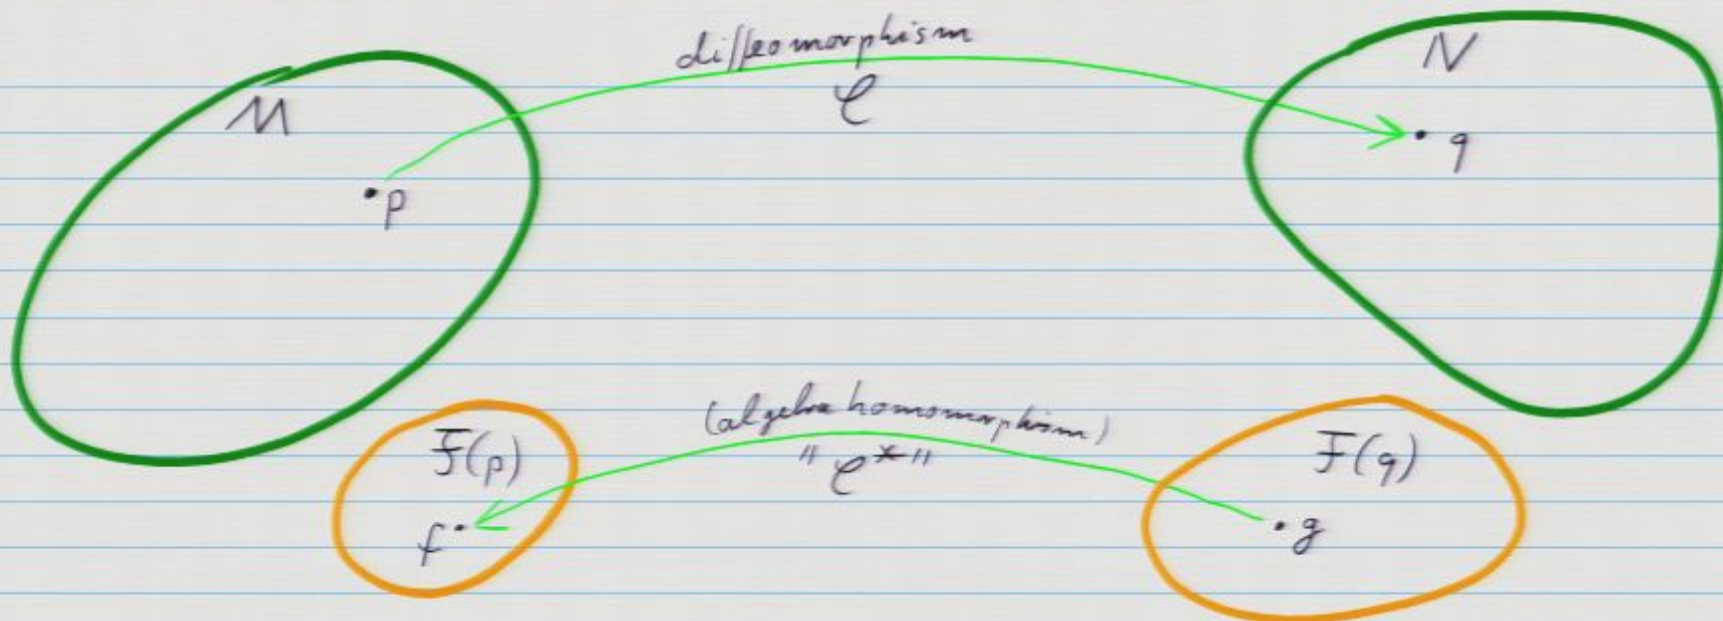 diffeomorphism
φ
M
N
• p
• q
(algebra homomorphism)
" φ* "
F(p)
F(q)
f •
• g